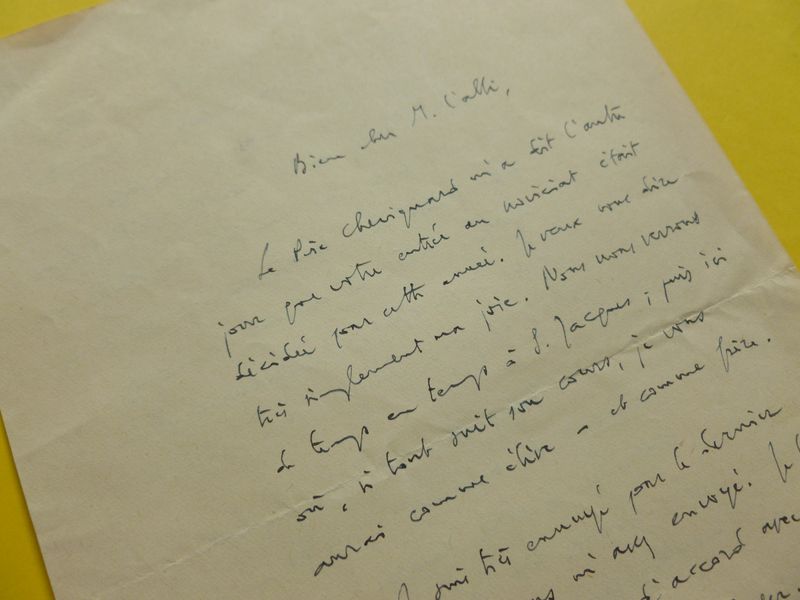 Bien cher M. l'abbé,
Le Père Cheviguard m'a dit l'autre
jour que votre entrée au noviciat était
décidée pour cette année. Je veux vous dire
très simplement ma joie. Nous nous verrons
de temps en temps à S. Jacques ; puis ici
où, si tout suit son cours, je vous
aurai comme élève – et comme frère.
suis très ennuyé pour le dernier
m'avez envoyé. Je
d'accord avec